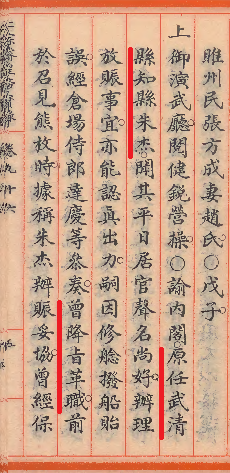 睢州民張方成妻趙氏○戊子
上御演武廳閱健銳營操○諭內閣原任武清
縣知縣朱杰聞其平日居官聲名尚好辦理
放賑事宜亦能認真出力嗣因修艌撥船貽
誤經倉場侍郎達慶等叅奏曾降旨革職前
於召見熊枚時據稱朱杰辦賑妥協曾經保